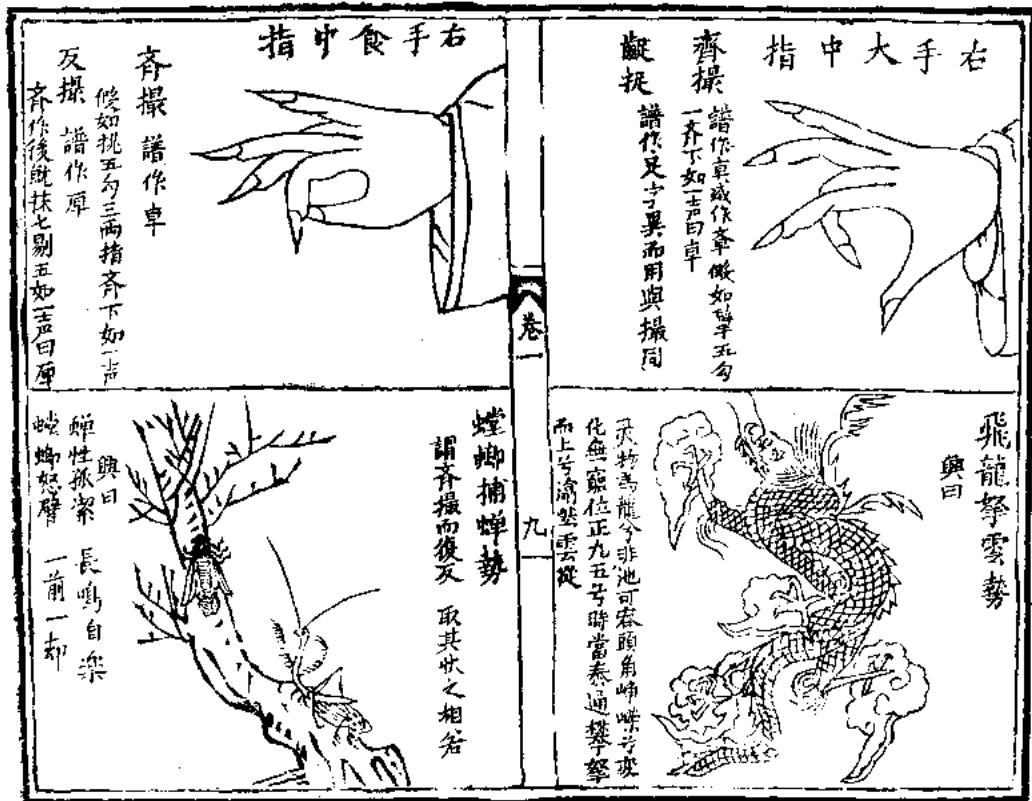 右手大中指
齊撮
譜作真或作𠦝倣如擘五勾
一齊下如一声曰卓
齪捉
譜作足字異而用與撮同
飛龍拏雲勢
興曰
靈物為龍兮非池可容頭角崢嶸兮变
化無窮位正九五兮時當泰通攀拏
而上兮滃然雲從
卷一
九
右手食中指
齐撮 譜作卓
假如挑五勾三兩指齐下如一声
反撮 譜作厗
齐作後就抹七剔五如一声曰厗
螳螂捕蝉勢
謂齐撮而復反 取其状之相若
興曰
蝉性孤潔 長鳴自樂
螳螂怒臂 一前一却